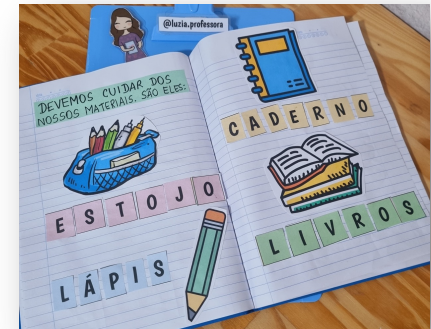 @luzia.professora
DEVEMOS CUIDAR DOS
NOSSOS MATERIAIS. SÃO ELES:
ESTOJO
LÁPIS
CADERNO
LIVROS